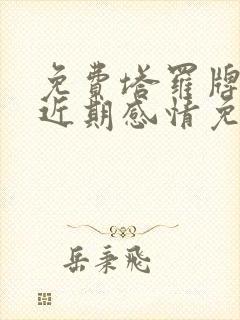 免費塔羅牌
近期感情免
岳秉飛